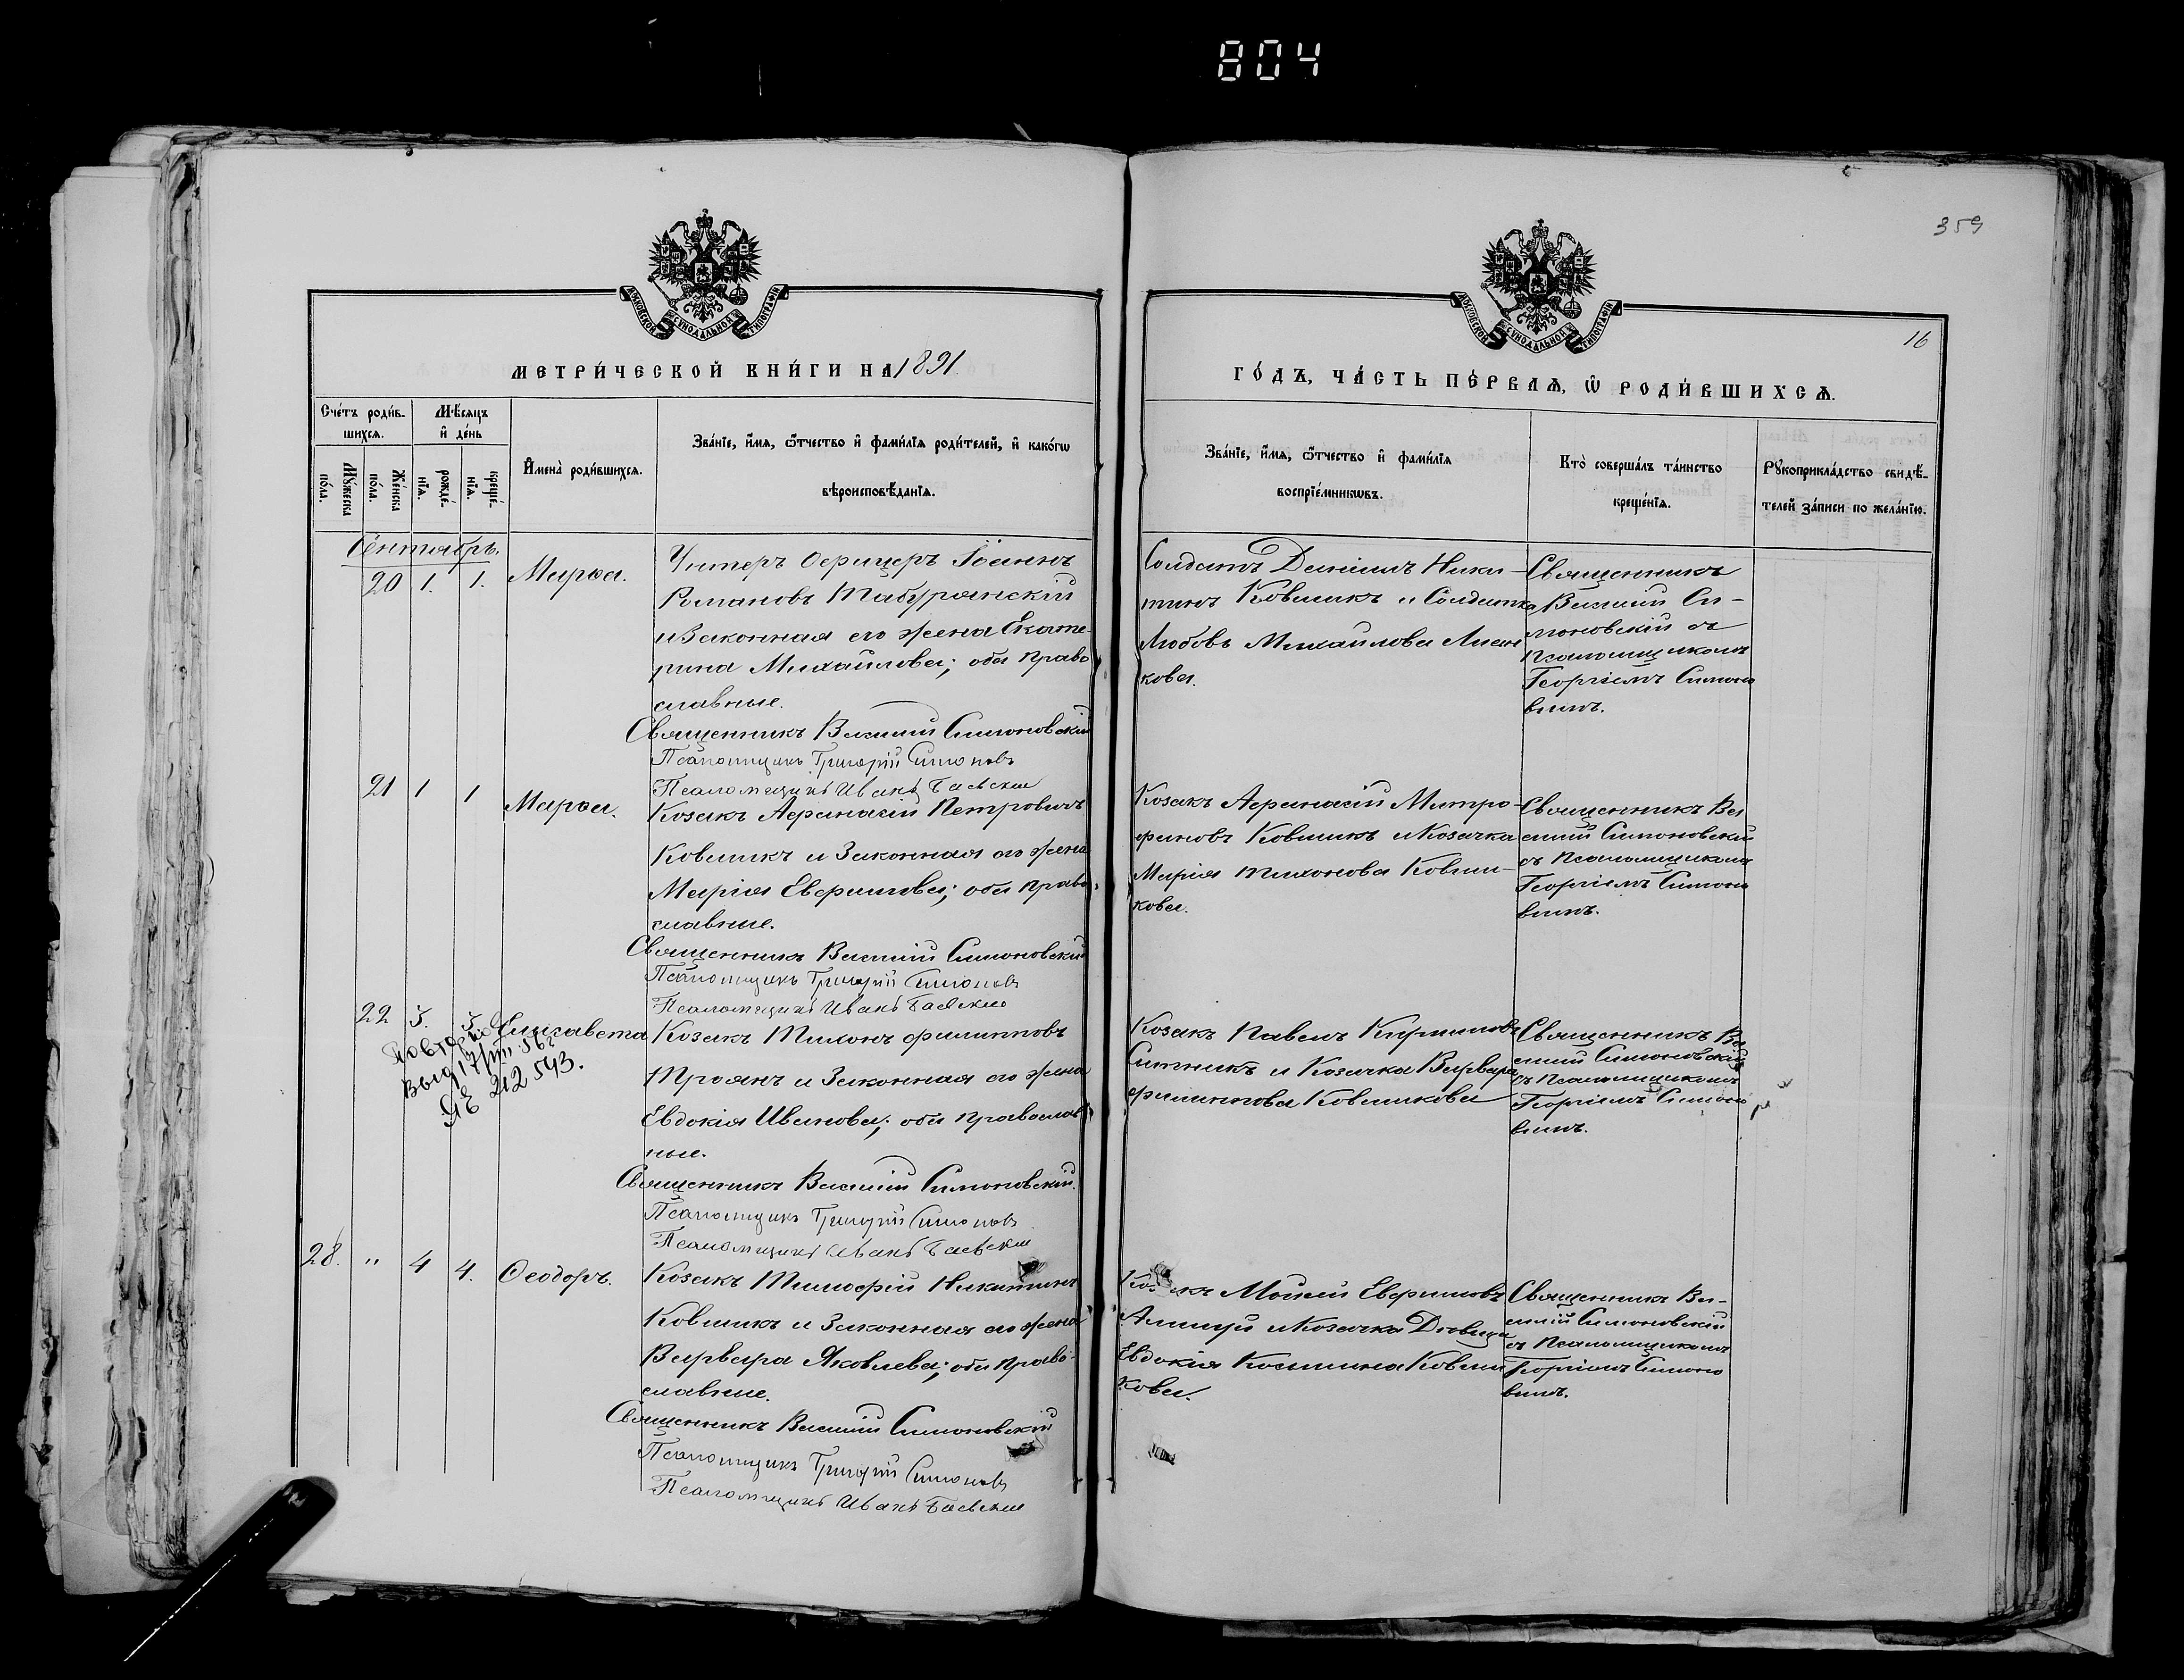 804
359
16
МОСКОВСКОЙ СѴНОДАЛЬНОЙ ТИПОГРАФІИ
МОСКОВСКОЙ СѴНОДАЛЬНОЙ ТИПОГРАФІИ
МЕТРИ́ЧЕСКОЙ КНИ́ГИ НА 1891.
ГО́ДЪ, ЧА́СТЬ ПЕ́РВАѦ, Ѡ҆ РОДИ́ВШИХСѦ.
Сче́тъ роди́в-
шихсѧ.
Мѣ́сѧцъ
и҆ де́нь
Мꙋ́жеска
по́ла.
Же́нска
по́ла.
рожде́-
нїѧ.
креще́-
нїѧ.
И҆мена̀ роди́вшихсѧ.
Зва́нїе, и҆́мѧ, ѻ҆́тчество и҆ фами́лїѧ роди́телей, и҆ како́гѡ
вѣроисповѣ́данїѧ.
Зва́нїе, и҆́мѧ, ѻ҆́тчество и҆ фами́лїѧ
воспрїе́мникѡвъ.
Кто̀ соверша́лъ та́инство
креще́нїѧ.
Рꙋкоприкла́дство свидѣ́-
телей за́писи по жела́нїю.
Сентябрь.
20 1. 1. Марѳа.
Унтеръ Офицеръ Іоаннъ
Романовъ Табуранскій
и Законная его жена Екате-
рина Михайлова; оба право
славные.
Священникъ Василій Симоновскій
Псаломщикъ Григорій Симоновъ
Псаломщикъ Иванъ Баевскій
Солдатъ Даніилъ Ники-
тинъ Ковшикъ и Солдатка
Любовь Михайлова
кова.
Священникъ
Василій Си-
моновскій съ
псаломщикомъ
Георгіемъ Симоно
вымъ.
21 1 1 Марѳа.
Козакъ Афанасій Петровичъ
Ковшикъ и Законная его жена
Марія Евфимова; оба право
славные.
Священникъ Василій Симоновскій
Псаломщикъ Григорій Симоновъ
Псаломщикъ Иванъ Баевскій
Козакъ Афанасій Митро-
фановъ Ковшикъ и Козачка
Марія Тихонова Ковши-
кова.
Священникъ Ва
силій Симоновскій
съ Псаломщикомъ
Георгіемъ Симоно
вымъ.
22 5. 5 Елисавета
Повторное
Выд. 17/VII 56 г
ЯЕ 212 543.
Козакъ Тихонъ Филипповъ
Троянъ и Законная его жена
Евдокія Иванова; оба православ
ные.
Священникъ Василій Симоновскій.
Псаломщикъ Григорій Симоновъ
Псаломщикъ Иванъ Баевскій
Козакъ Павелъ Кирилловъ
Ситникъ и Козачка Варвара
Филиппова Ковшикова
Священникъ Ва
силій Симоновскій
съ Псаломщикомъ
Георгіемъ Симоно
вымъ.
28. " 4 4. Ѳеодоръ.
Козакъ Тимофій Никитинъ
Ковшикъ и Законная его жена
Варвара Яковлева; оба право-
славные.
Священникъ Василій Симоновскій
Псаломщикъ Григорій Симоновъ
Псаломщикъ Иванъ Баевскій
Козакъ Моисей Евфимовъ
и Козачка Дѣвица
Евдокія Козьмина Ковши
кова.
Священникъ Ва-
силій Симоновскій
съ Псаломщикомъ
Георгіемъ Симоно
вымъ.